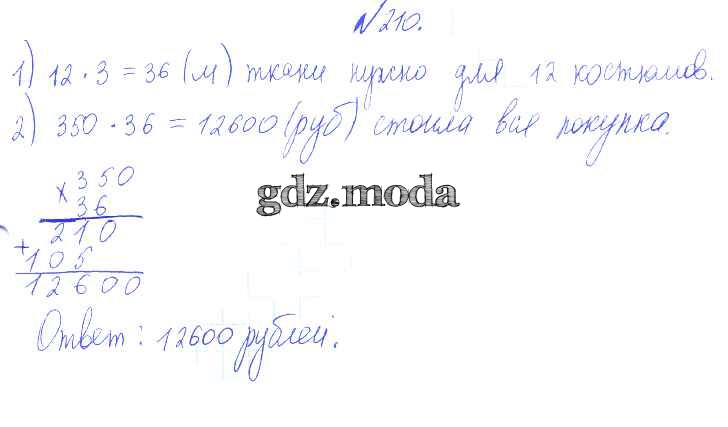 №210.
1) 12 · 3 = 36 (м) ткани нужно для 12 костюмов.
2) 350 · 36 = 12600 (руб) стоила вся покупка.
× 350
36
210
+ 105
12600
gdz.moda
Ответ: 12600 рублей.